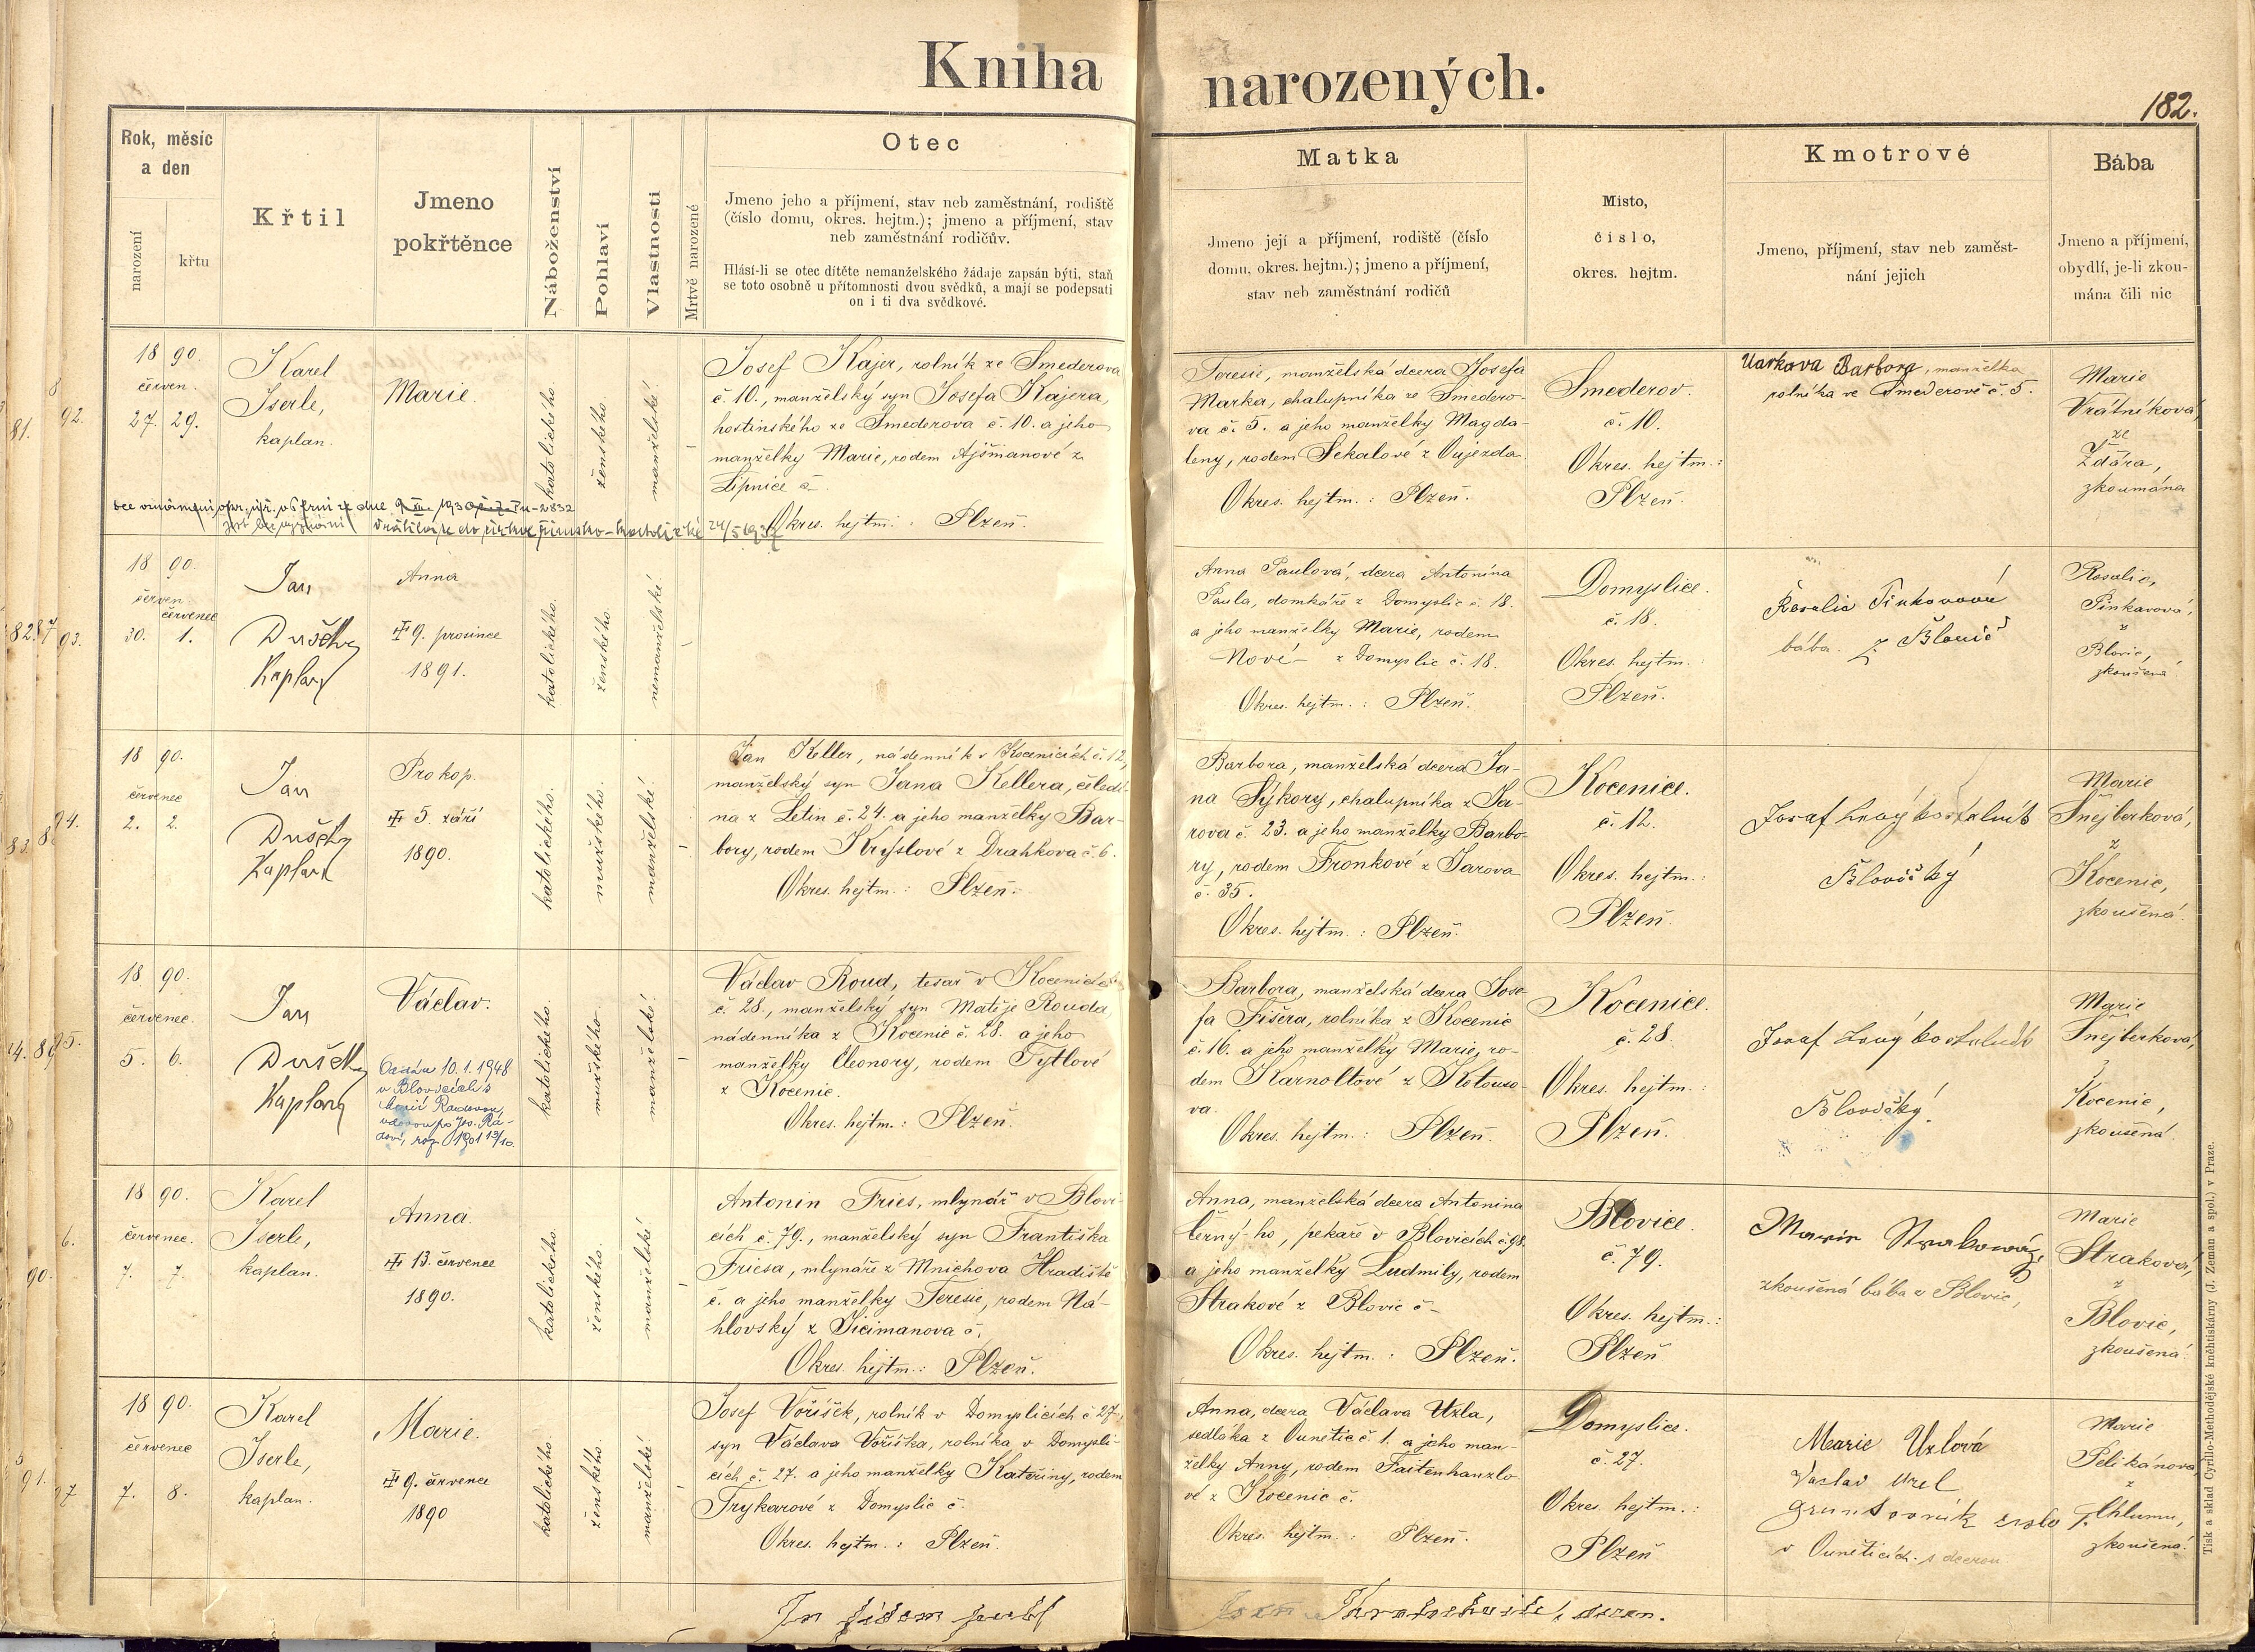 Kniha narozených.
182.
Rok, měsíc
a den
narození
křtu
Křtil
Jmeno
pokřtěnce
Náboženství
Pohlaví
Vlastnosti
Mrtvě narozené
Otec
Jmeno jeho a příjmení, stav neb zaměstnání, rodiště
(číslo domu, okres. hejtm.); jmeno a příjmení, stav
neb zaměstnání rodičův.
Hlásí-li se otec dítěte nemanželského žádaje zapsán býti, staň
se toto osobně u přítomnosti dvou svědků, a mají se podepsati
on i ti dva svědkové.
Matka
Jmeno její a příjmení, rodiště (číslo
domu, okres. hejtm.); jmeno a příjmení,
stav neb zaměstnání rodičů
Misto,
číslo,
okres. hejtm.
Kmotrové
Jmeno, příjmení, stav neb zaměst-
nání jejich
Bába
Jmeno a příjmení,
obydlí, je-li zkou-
mána čili nic
18 90.
červen.
27. 29.
Karel
Iserle,
kaplan.
Marie.
katolického.
ženského.
manželské.
Josef Kajer, rolník ze Smederova
č. 10., manželský syn Josefa Kajera,
hostinského ze Smederova č. 10. a jeho
manželky Marie, rodem Ajšmanové z
Lipnice č.
Okres. hejtm. : Plzeň.
Teresie, manželská dcera Josefa
Marka, chalupníka ze Smedero-
va č. 5. a jeho manželky Magda-
leny, rodem Sekalové z Oujezda
Okres. hejtm. : Plzeň.
Smederov.
č. 10.
Okres. hejtm. :
Plzeň.
Barbora, manželka
rolníka ve Smederově č. 5.
Marie
Vrátníková,
ze
Ždára,
zkoumána
18 90.
červen
červenec
30. 1.
Jan
Dušek
Kaplan
Anna
9. prosince
1891.
katolického.
ženského.
nemanželské.
Anna Paulová, dcera Antonína
Paula, domkáře z Domyslic č. 18.
a jeho manželky Marie, rodem
Nové z Domyslic č. 18.
Okres. hejtm. : Plzeň.
Domyslice.
č. 18.
Okres. hejtm.
Plzeň.
Rosalie Pinkavová
bába z Blovic
Rosalie,
Pinkavová,
z
Blovic,
zkoušená
18 90.
červenec
2. 2.
Jan
Dušek
Kaplan
Prokop.
5. září
1890.
katolického.
mužského.
manželské.
Jan Keller, nádenník v Kocenicích č. 12,
manželský syn Jana Kellera, čeledí-
na z Letin č. 24. a jeho manželky Bar-
bory, rodem Kryslové z Drahkova č. 6.
Okres. hejtm. : Plzeň.
Barbora, manželská dcera Ja-
na Sýkory, chalupníka z Ja-
rova č. 23. a jeho manželky Barbo-
ry, rodem Fronkové z Jarova
č. 35.
Okres. hejtm. : Plzeň.
Kocenice.
č. 12.
Okres. hejtm. :
Plzeň.
Josef
Blovický
Marie
Šnejberková,
z
Kocenic,
zkoušená.
18 90.
červenec.
5. 6.
Jan
Dušek
Kaplan
Václav.
Oddán 10. 1. 1948
v Blovicích s
katolického.
mužského.
manželské.
Václav Roud, tesař v Kocenicích
č. 28., manželský syn Matěje Rouda,
nádenníka z Kocenic č. 28. a jeho
manželky Eleonory, rodem Tytlové
z Kocenic.
Okres. hejtm. : Plzeň.
Barbora, manželská dcera Jose-
fa Fišera, rolníka z Kocenic
č. 16. a jeho manželky Marie, ro-
dem Karnoltové z Kotouso-
va.
Okres. hejtm. : Plzeň.
Kocenice.
č. 28
Okres. hejtm. :
Plzeň.
Josef
Blovický.
Marie
Šnejberková,
z
Kocenic,
zkoušená.
18 90.
červenec.
7. 7.
Karel
Iserle,
kaplan.
Anna.
13. července
1890.
katolického.
ženského.
manželské
Antonin Fries, mlynář v Blovi-
cích č. 79., manželský syn Františka
Friesa, mlynáře z Mnichova Hradiště
č. a jeho manželky Teresie, rodem Ná-
hlovský z Jičimanova č.
Okres. hejtm.: Plzeň.
Anna, manželská dcera Antonina
Černý-ho, pekaře v Blovicích č. 98.
a jeho manželky Ludmily, rodem
Strakové z Blovic č.
Okres. hejtm. : Plzeň.
Blovice.
č. 79.
Okres. hejtm. :
Plzeň
Marie Straková,
zkoušená bába z Blovic,
Marie
Straková,
z
Blovic,
zkoušená.
18 90.
červenec
7. 8.
Karel
Iserle,
kaplan.
Marie.
9. července
1890
katolického.
ženského.
manželské.
Josef Voříšek, rolník v Domyslicích č. 27.,
syn Václava Voříška, rolníka v Domysli-
cích č. 27. a jeho manželky Kateřiny, rodem
Trykarové z Domyslic č.
Okres. hejtm. : Plzeň.
Anna, dcera Václava Uzla,
sedláka z Ounětic č. 1. a jeho man-
želky Anny, rodem Faitenhanzlo-
vé z Kocenic č.
Okres. hejtm. : Plzeň.
Domyslice.
č. 27.
Okres. hejtm. :
Plzeň
Marie Uzlová
Vaclav Uzel
gruntovník číslo 1.
v Ouněticích s dcerou
Marie
Pelikánová
z
Chlumu,
zkoušená.
In fidem
Tisk a sklad Cyrillo-Methodějské kněhtiskárny (J. Zeman a spol.) v Praze.